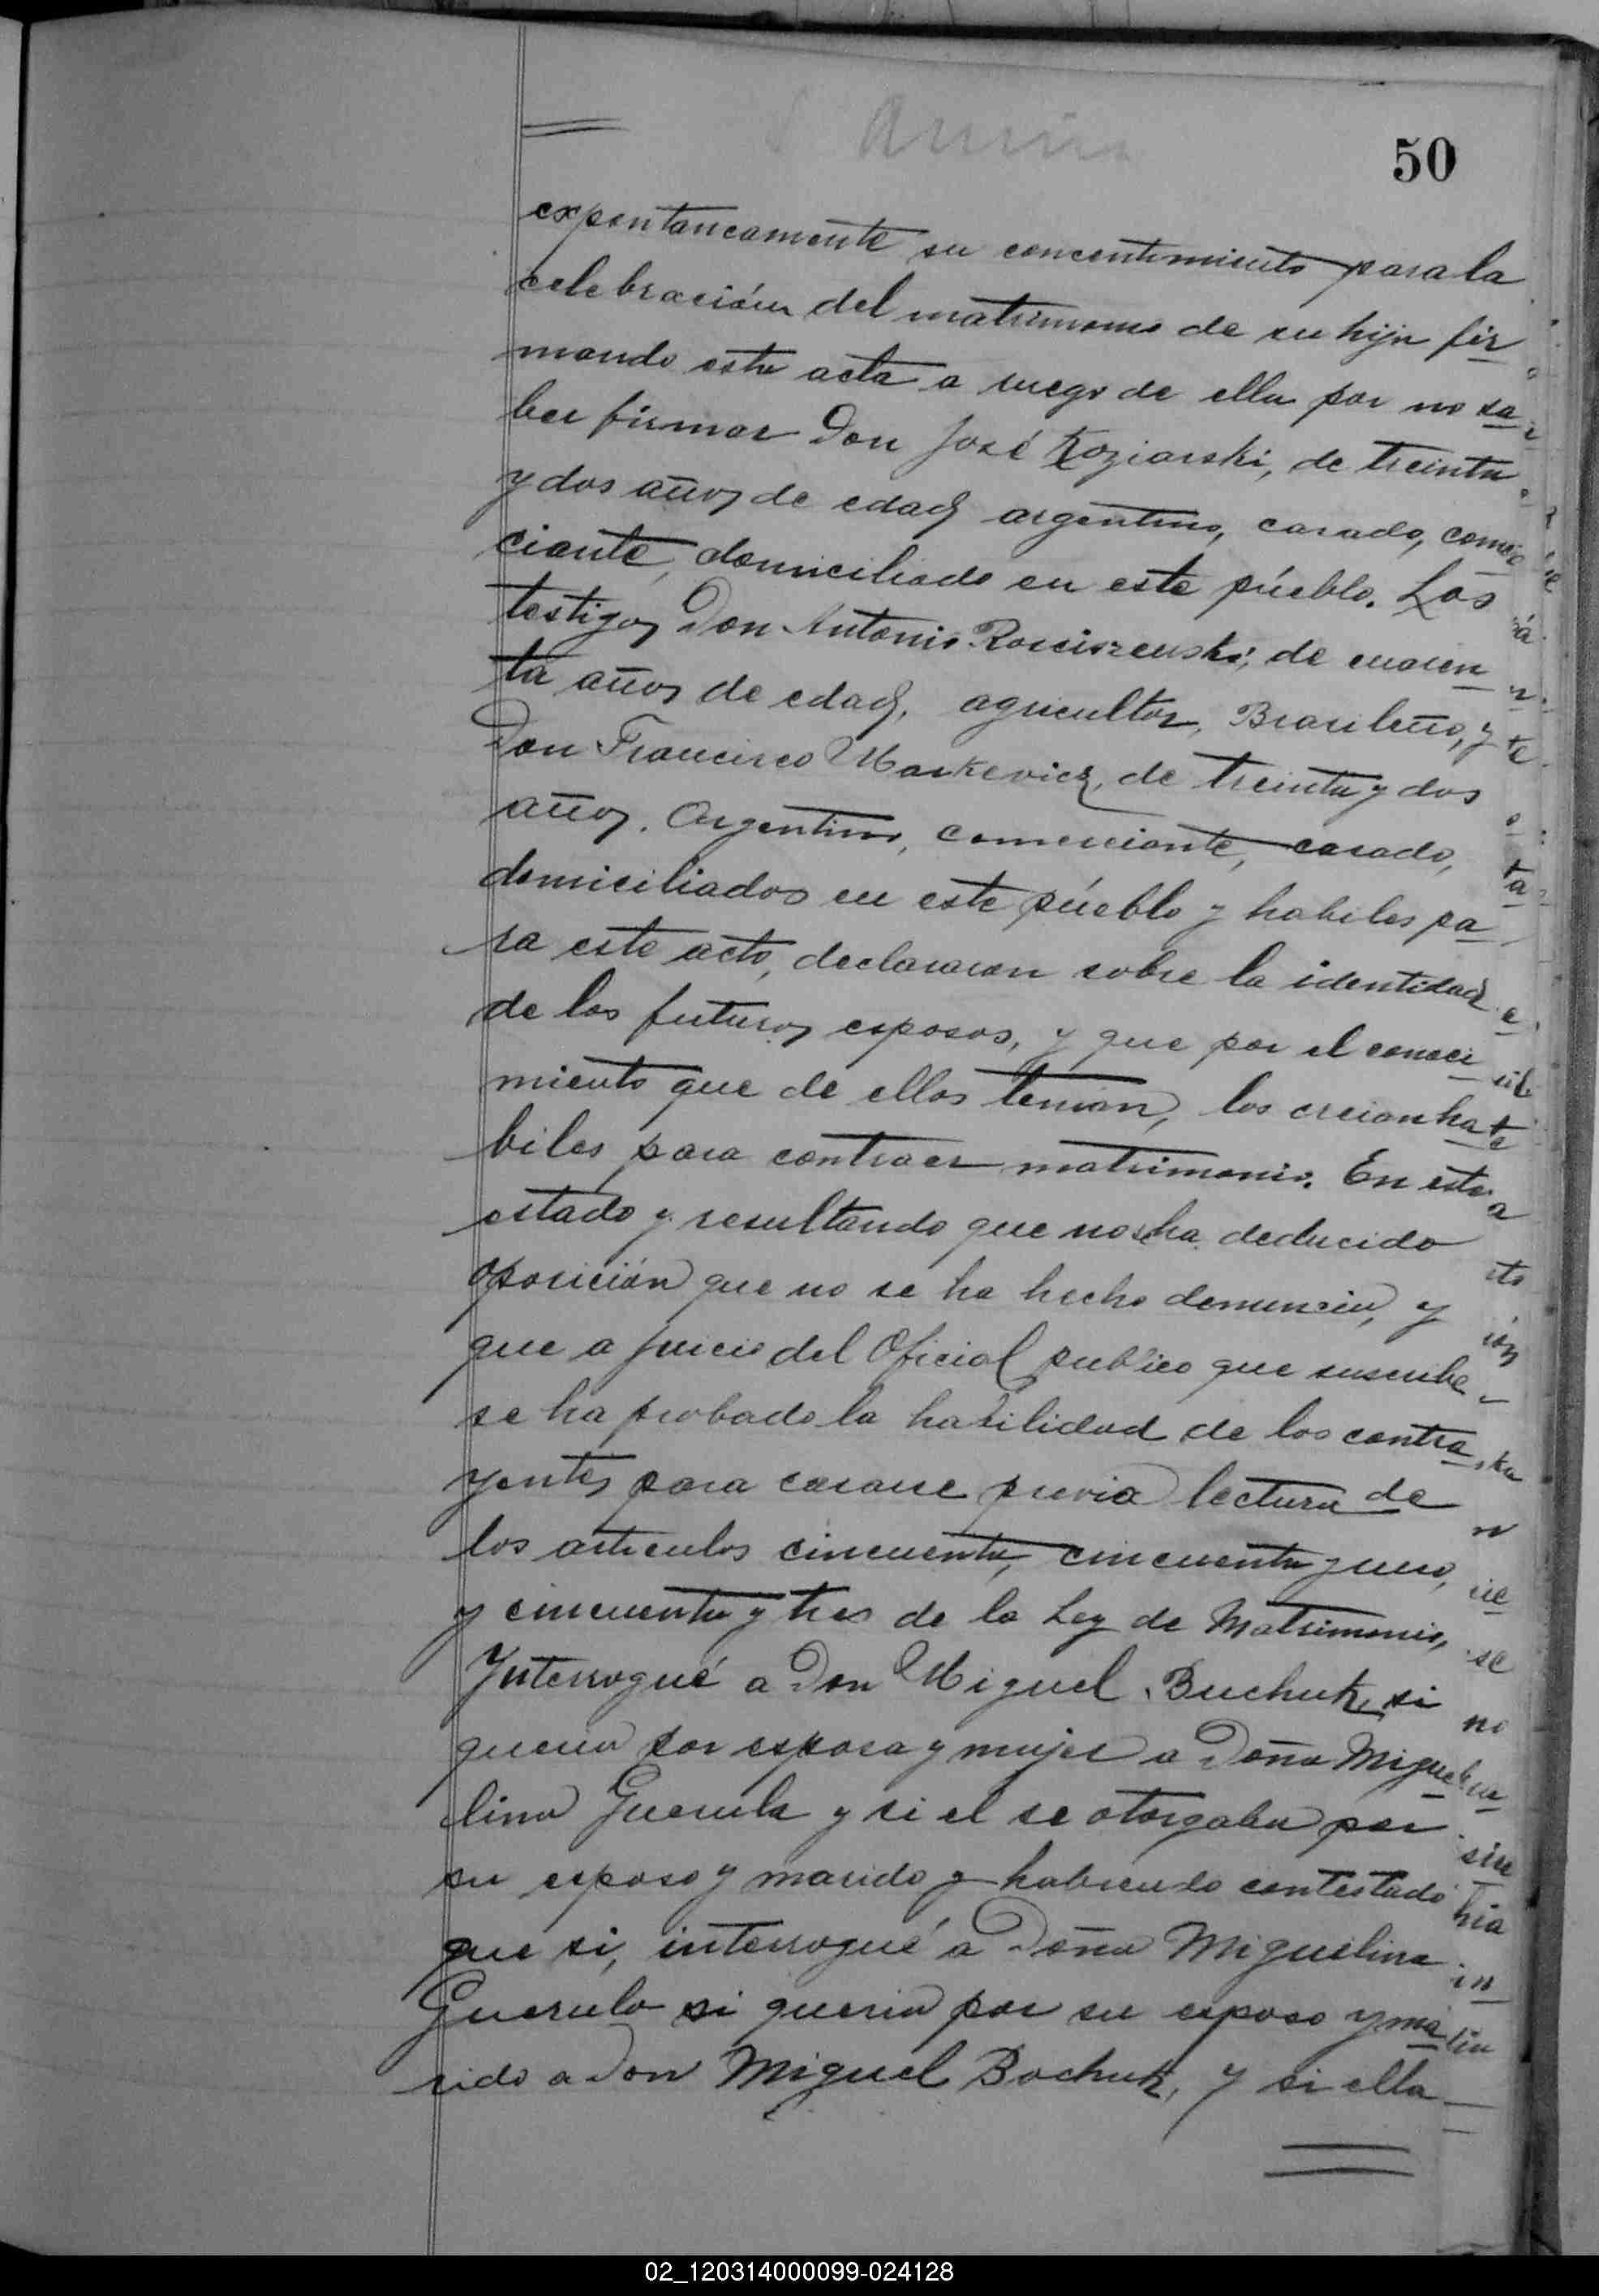 50
expontaneamente su concentimiento para la
celebración del matrimonio de su hija fir
mando esta acta a ruego de ella por no sa
ber firmar Don José Koziarski, de treinta
y dos años de edad argentino, casado, comer
ciante, domiciliado en este púeblo. Los
testigos Don Antonio Rosciszewski, de cuaren
ta años de edad, agricultor, Brasileño, y
Don Francisco Markevicz, de treinta y dos
años, Argentino, comerciante, casado,
domiciliados en este púeblo y habiles pa
ra este acto, declararon sobre la identidad
de los futuros esposos, y que por el conoci
miento que de ellos tenian, los creian ha
biles para contraer matrimonio. En este
estado y resultando que no se ha deducido
oposición que no se ha hecho denuncia, y
que a juicio del Oficial publico que suscribe
se ha probado la habilidad de los contra
yentes para casarse previa lectura de
los articulos cincuenta, cincuenta y uno,
y cincuenta y tres de la Ley de Matrimonio,
Interrogué a Don Miguel Buchuk, si
queria por esposa y mujer a Doña Migue
lina Guerula y si el se otorgaba por
su esposo y marido y habiendo contestado
que si, interrogué a Doña Miguelina
Guerula si queria por su esposo y ma
rido a Don Miguel Bochuk, y si ella
02_120314000099-024128